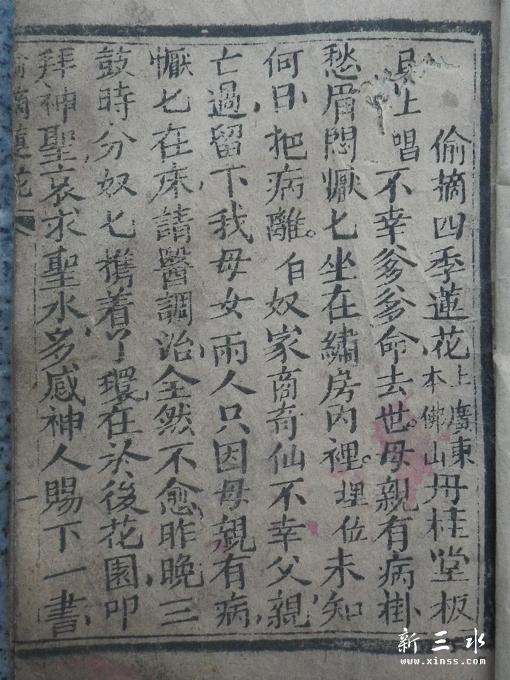 偷摘四季蓮花上本廣東佛山丹桂堂板
旦上唱不幸爹爹命去世母親有病掛
愁眉悶懨匕坐在繡房內裡。埋位未知
何日把病離。白奴家商奇仙不幸父親
亡過留下我母女兩人只因母親有病
懨匕在床請醫調治全然不愈昨晚三
鼓時分奴匕携着了環在於後花園叩
拜神聖哀求聖水多感神人賜下一書
偷摘蓮花 一
新三水
www.xinss.com